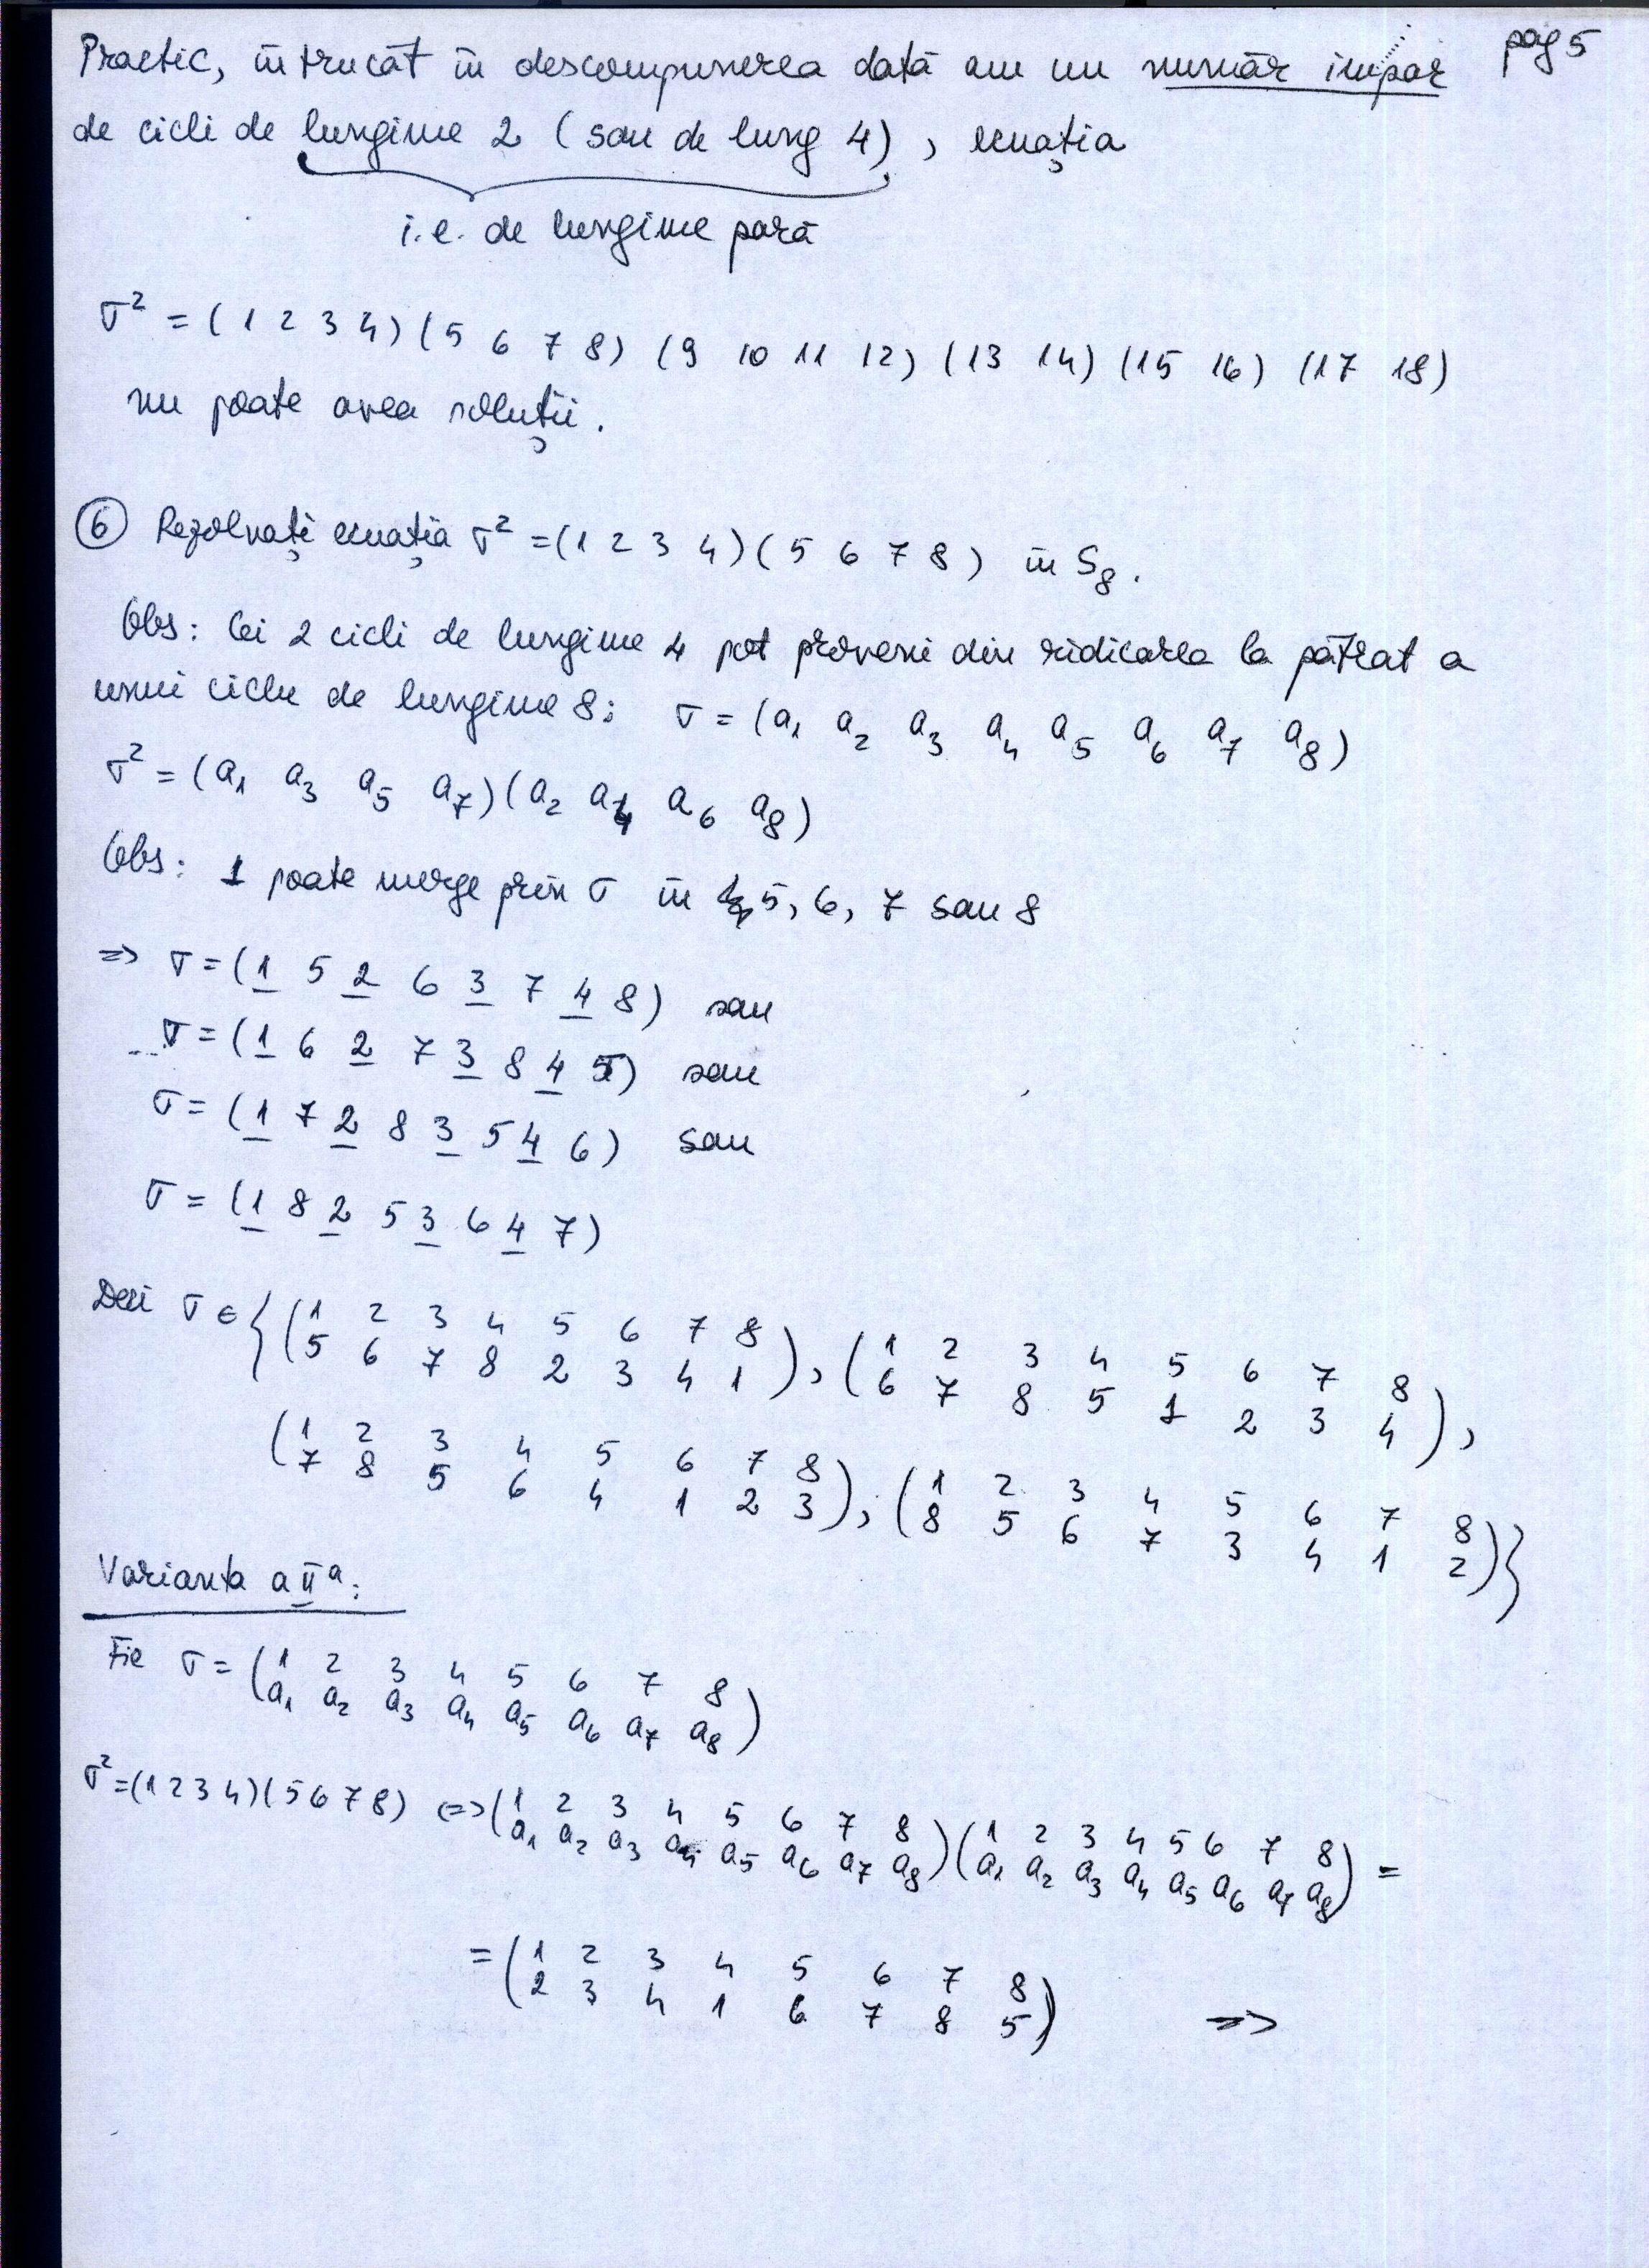 pag 5
Practic, întrucât în descompunerea dată am un număr impar
de cicli de lungime 2 (sau de lung 4), ecuația
i.e. de lungime pară
σ² = (1 2 3 4)(5 6 7 8)(9 10 11 12)(13 14)(15 16)(17 18)
nu poate avea soluții.
⑥ Rezolvați ecuația σ² = (1 2 3 4)(5 6 7 8) în S₈.
Obs: Cei 2 cicli de lungime 4 pot proveni din ridicarea la pătrat a
unui ciclu de lungime 8: σ = (a₁ a₂ a₃ a₄ a₅ a₆ a₇ a₈)
σ² = (a₁ a₃ a₅ a₇)(a₂ a₄ a₆ a₈)
Obs: 1 poate merge prin σ în 5, 6, 7 sau 8
=> σ = (1 5 2 6 3 7 4 8) sau
σ = (1 6 2 7 3 8 4 5) sau
σ = (1 7 2 8 3 5 4 6) sau
σ = (1 8 2 5 3 6 4 7)
Deci σ ∈ { (1 2 3 4 5 6 7 8 / 5 6 7 8 2 3 4 1), (1 2 3 4 5 6 7 8 / 6 7 8 5 1 2 3 4),
(1 2 3 4 5 6 7 8 / 7 8 5 6 4 1 2 3), (1 2 3 4 5 6 7 8 / 8 5 6 7 3 4 1 2) }
Varianta a IIª:
Fie σ = (1 2 3 4 5 6 7 8 / a₁ a₂ a₃ a₄ a₅ a₆ a₇ a₈)
σ² = (1 2 3 4)(5 6 7 8) <=> (1 2 3 4 5 6 7 8 / a₁ a₂ a₃ a₄ a₅ a₆ a₇ a₈)(1 2 3 4 5 6 7 8 / a₁ a₂ a₃ a₄ a₅ a₆ a₇ a₈) =
= (1 2 3 4 5 6 7 8 / 2 3 4 1 6 7 8 5) =>